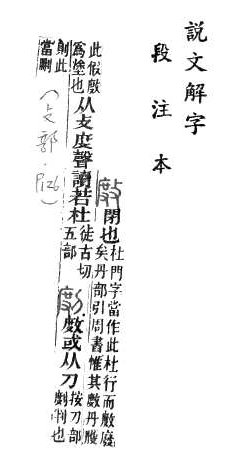 說文解字
段注本
𢾖閉也
杜門字當作此杜行而𢾖廢
矣丹部引周書惟其𢾖丹雘
此假𢾖
爲塗也
从攴度聲讀若杜
徒古切
五部
剫𢾖或从刀
按刀部
剫判也
則此
當刪
(攴部.P126)